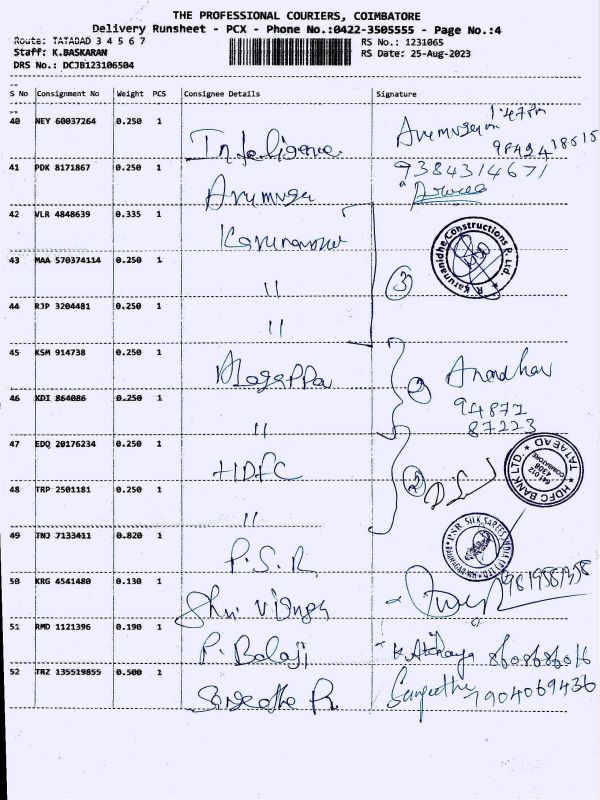 THE PROFESSIONAL COURIERS, COIMBATORE
Delivery Runsheet - PCX - Phone No.:0422-3505555 - Page No.:4
Route: TATADAD 3 4 5 6 7
RS No.: 1231065
Staff: K.BASKARAN
RS Date: 25-Aug-2023
DRS No.: DCJB123106504
S No Consignment No Weight PCS Consignee Details Signature
1:47 PM
40 NEY 60037264 0.250 1 Intelligence
41 PDK 8171867 0.250 1 Arumuga 9384314671
42 VLR 4848639 0.335 1
Karunanidhe Constructions P. Ltd.
43 MAA 570374114 0.250 1 " 3
44 RJP 3204481 0.250 1 "
45 KSM 914738 0.250 1 Alagappa 2 Anandhan
46 KDI 864086 0.250 1 " 94871
87223
47 EDQ 20176234 0.250 1 HDFC 2
HDFC BANK LTD. TATABAD
641 012
COIMBATORE
48 TRP 2501181 0.250 1 "
49 TNJ 7133411 0.820 1 P.S.R
PSR SILK SAREES INDIA (P) LTD
50 KRG 4541480 0.130 1 Shri Vishnu
51 RMD 1121396 0.190 1 P. Balaji K. Atchaya 8608686016
52 TRZ 135519855 0.500 1 Sangeetha R Sangeetha 7904069436